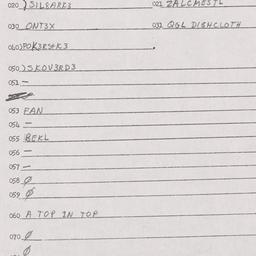 020 )SIL8ARK3 021 ZALCMESTL
030 ONT3X 031 QGL DISHCLOTH
040)POK3RSTK3
050 )SKOV3RD3
051 —
053 FAN
054 —
055 BEKL
056 —
057 —
058 Ø
059 Ø
060 A TOP IN TOP
070 Ø
Ø